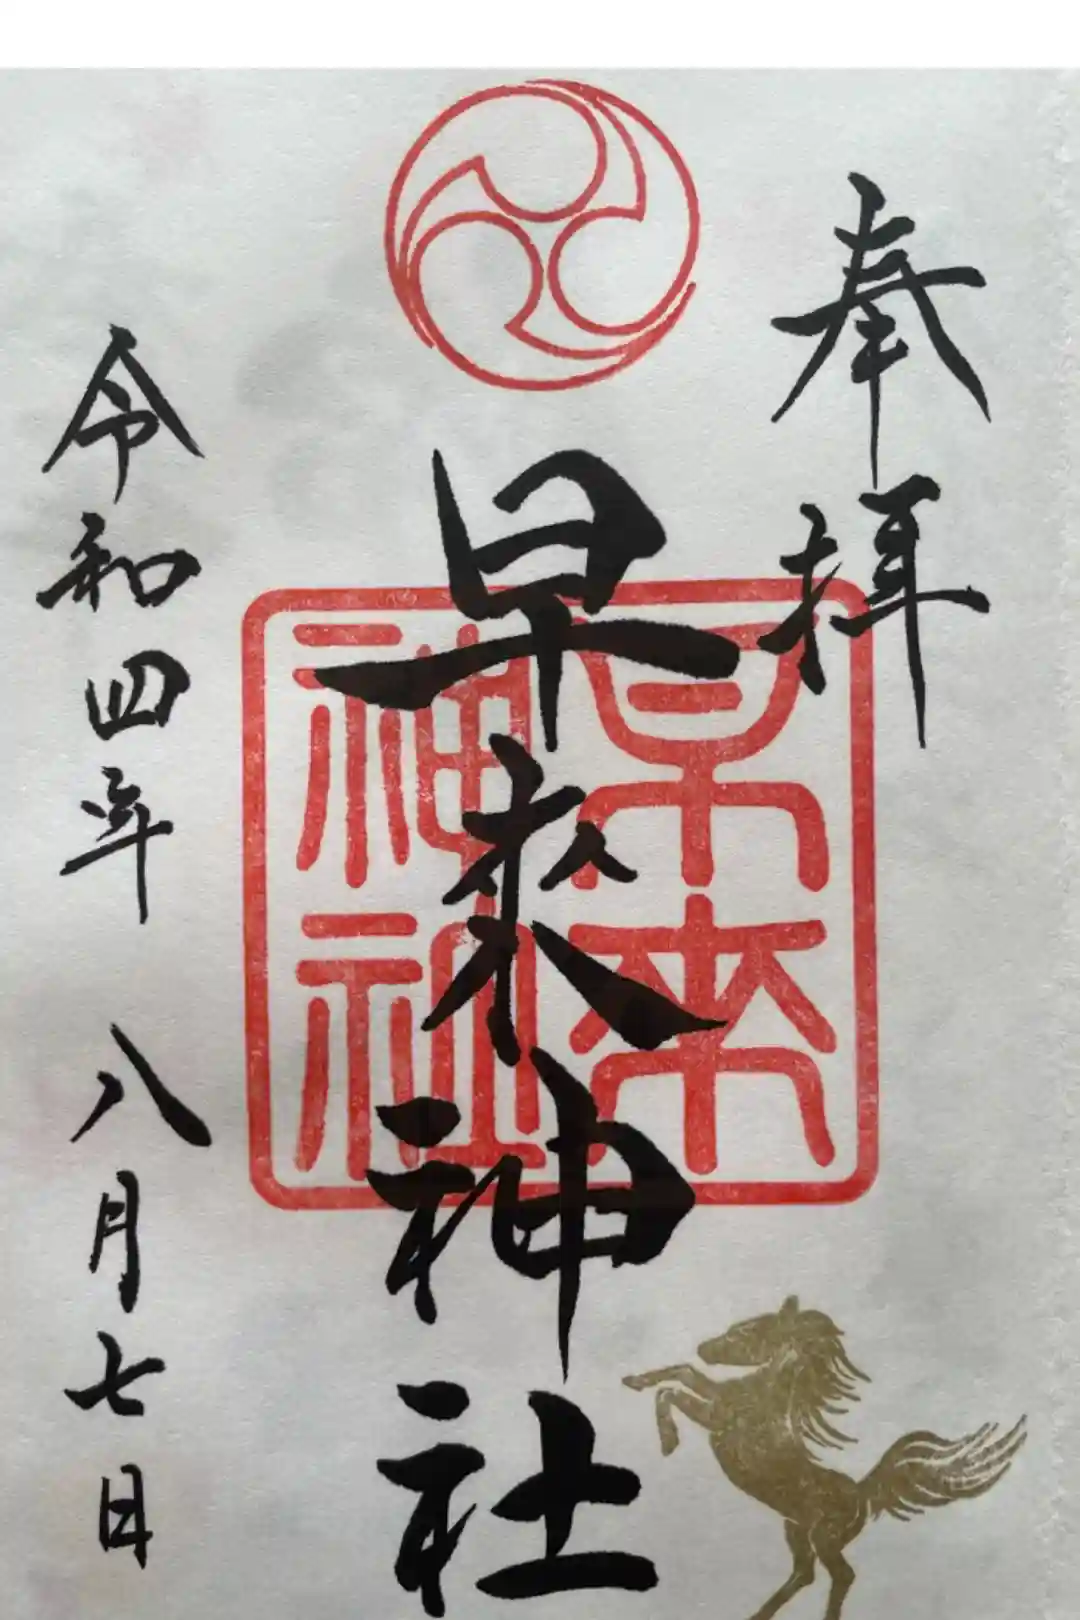 奉拝
早来神社
早来
神社
令和四年 八月七日